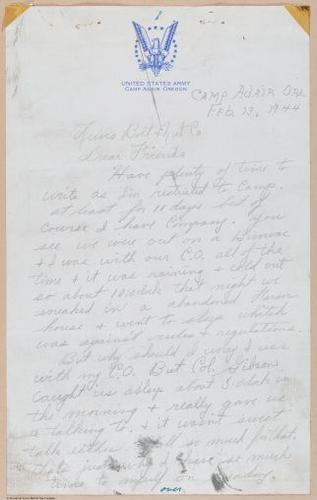 UNITED STATES ARMY
CAMP ADAIR, OREGON
CAMP ADAIR ORE
FEB 13, 1944
Bolt & Nut Co
Dear Friends
Have plenty of time to
write as I'm restricted to Camp.
at least for 10 days but of
course I have Company. You
see we were out on a Bivwac
& I was with our C.O. all of the
time & it was raining & cold out
so about 10 oclock that night we
sneaked in a abandoned
house & went to sleep which
was against rules & regulations.
But why should I worry I was
with my C.O. But Col. Gibson
caught us asleep about 3 oclock in
the morning & really gave us
a talking to. & it wasn't sweet
talk either so much for that.
thats just why I have so much
time to myself on Sunday.
over